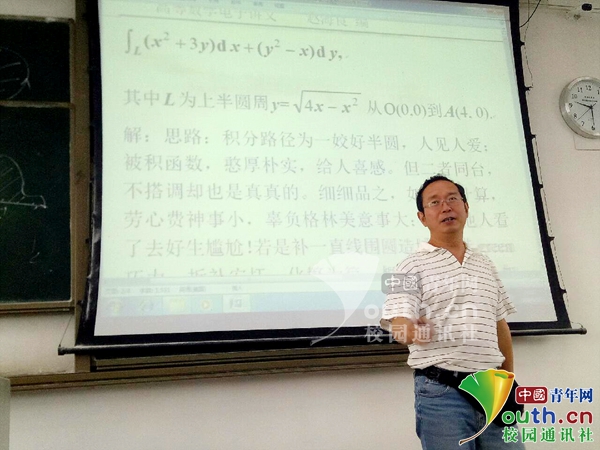 高等数学电子讲义
∫_L (x² + 3y)dx + (y² − x)dy,
其中L为上半圆周y=√(4x − x²) 从O(0,0)到A(4, 0).
解：思路：积分路径为一姣好半圆，人见人爱；
被积函数，憨厚朴实，给人喜感。但二者同台，
不搭调却也是真真的。细细品之，
算，
劳心费神事小，辜负格林美意事大；
人看
了去好生尴尬！若是补一直线围圆
中國青年网
youth.cn
校园通讯社
中國青年网
youth.cn
校园通讯社